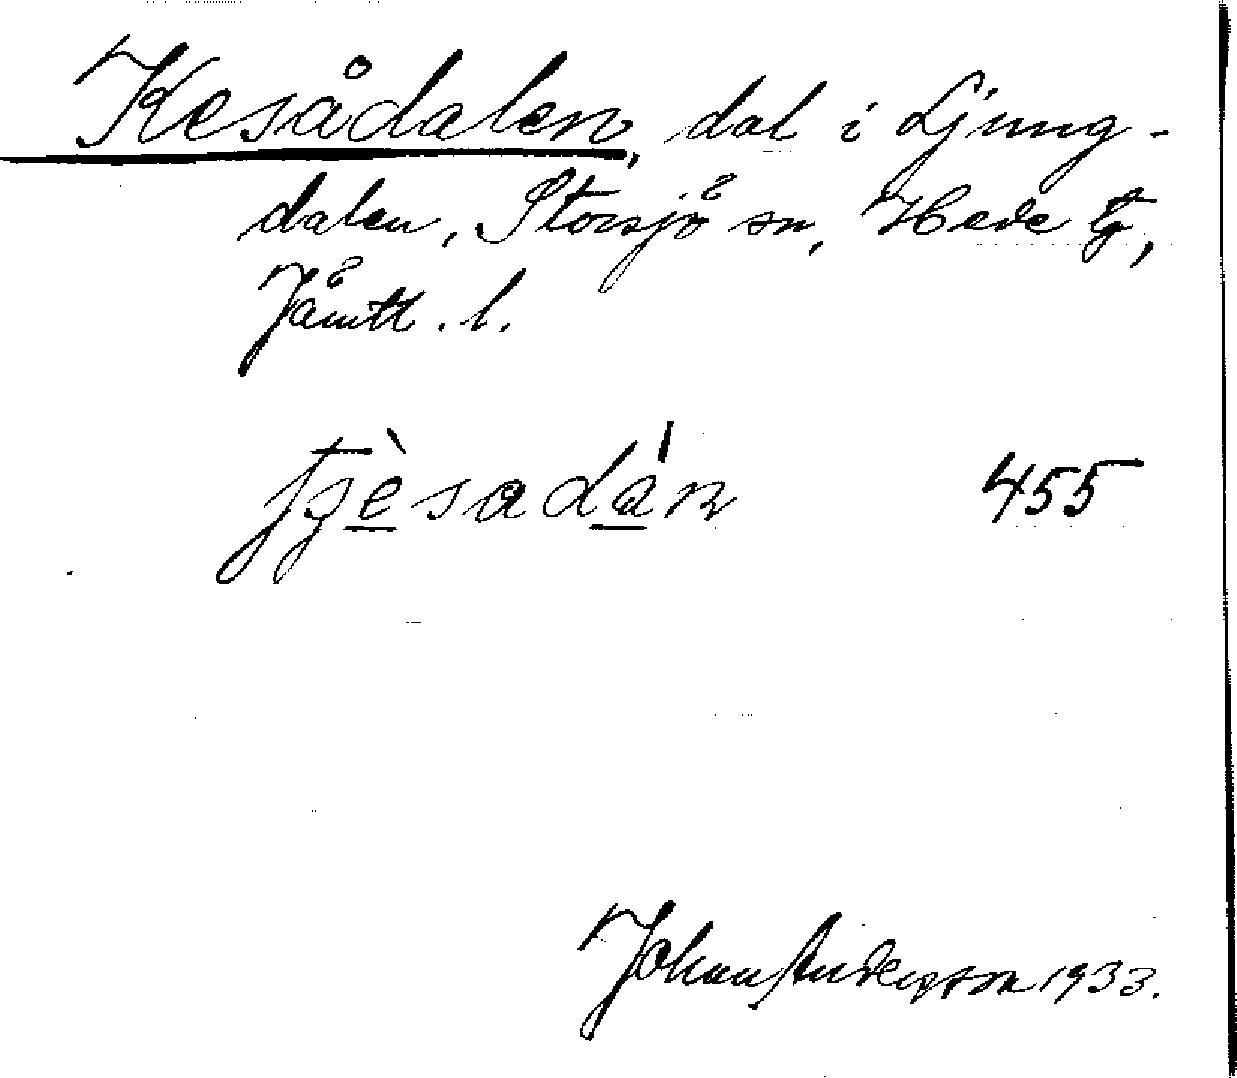 Kesådalen, dal i Ljung-
dalen, Storsjö sn, Hede tg,
Jämtl. l.
455
Johan Anderson 1933.